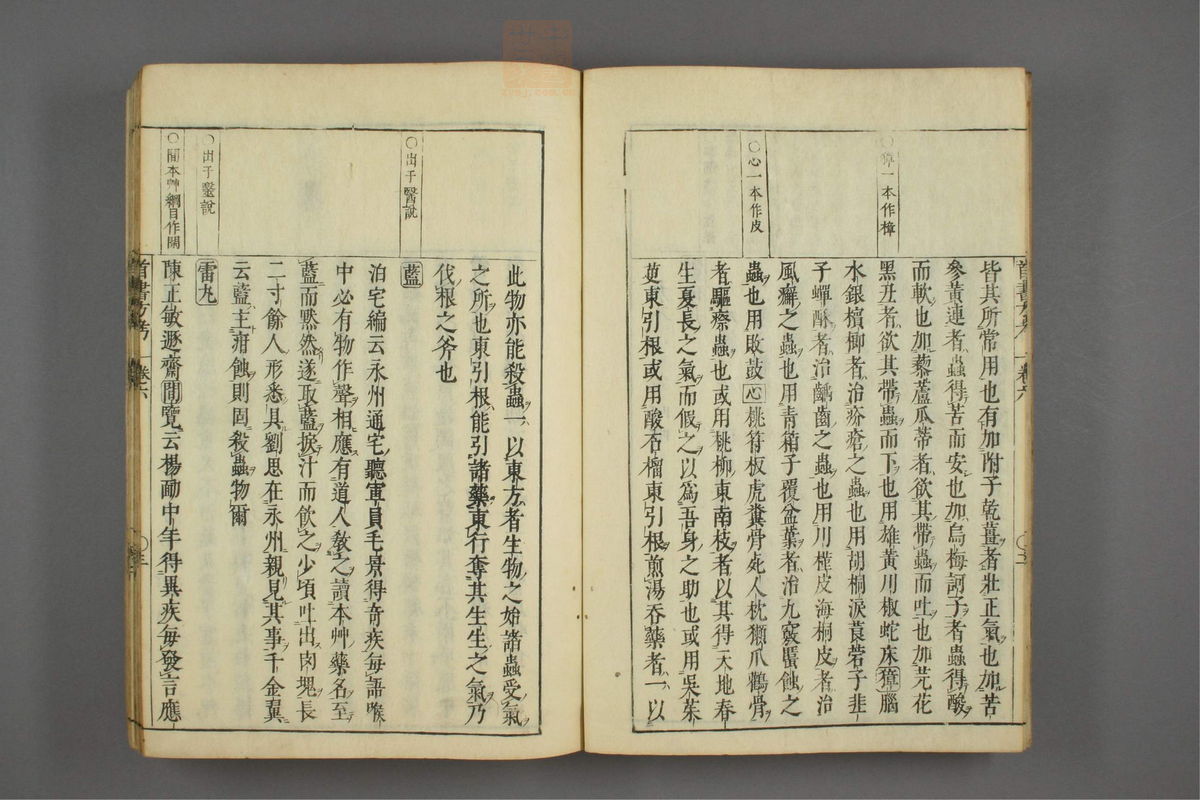 皆其所常用也有加附子乾薑者壯正氣也加苦
參黃連者蟲得苦而安也加烏梅訶子者蟲得酸
而軟也加藜蘆瓜蒂者欲其帶蟲而吐也加芫花
黑丑者欲其帶蟲而下也用雄黃川椒蛇床獐腦
水銀檳榔者治疥瘡之蟲也用胡桐淚莨菪子韭
子蟬酥者治齲齒之蟲也用川槿皮海桐皮者治
風癬之蟲也用青箱子覆盆葉者治九竅䘌蝕之
蟲也用敗鼓心桃符板虎糞骨死人枕獺爪鸛骨
者驅瘵蟲也或用桃柳東南枝者以其得天地春
生夏長之氣而假之以爲吾身之助也或用吳茱
萸東引根或用酸石榴東引根煎湯吞藥者一以
○獐一本作樟
○心一本作皮
首書方考 卷六
此物亦能殺蟲一以東方者生物之始諸蟲受氣
之所也東引根能引諸藥東行奪其生生之氣乃
伐根之斧也
藍
泊宅編云永州通宅聽軍員毛景得奇疾每語喉
中必有物作聲相應有道人教之讀本艸藥名至
藍而默然遂取藍捩汁而飲之少頃吐出肉塊長
二寸餘人形悉具劉思在永州親見其事千金翼
云藍主疳蝕則固殺蟲物爾
雷丸
陳正敏遯齋閒覽云楊勔中年得異疾每發言應
○出于醫說
○出于醫說
○閒本艸綱目作閑
首書方考 卷六